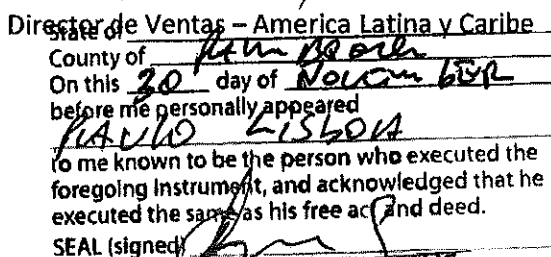 Director de Ventas – America Latina y Caribe
State of
County of Palm Beach
On this 30 day of November
before me personally appeared
Paulo Lisboa
to me known to be the person who executed the
foregoing instrument, and acknowledged that he
executed the same as his free act and deed.
SEAL (signed)